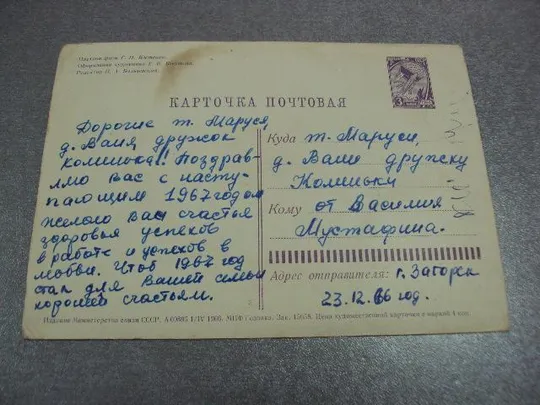 КАРТОЧКА ПОЧТОВАЯ
Дорогие т. Маруся,
д. Ваня дружок
Поздрав-
ляю Вас с насту-
пающим 1967 годом
желаю Вам счастья
здоровья успехов
в работе и успехов в
любви. Чтоб 1967 год
стал для Вашей семьи
хорошей счастьем.
Куда т. Маруси,
д. Ване дружку
Кому от Василия
Мустафина.
Адрес отправителя: г. Загорск
23.12.66 год.
Издание Министерства связи СССР.